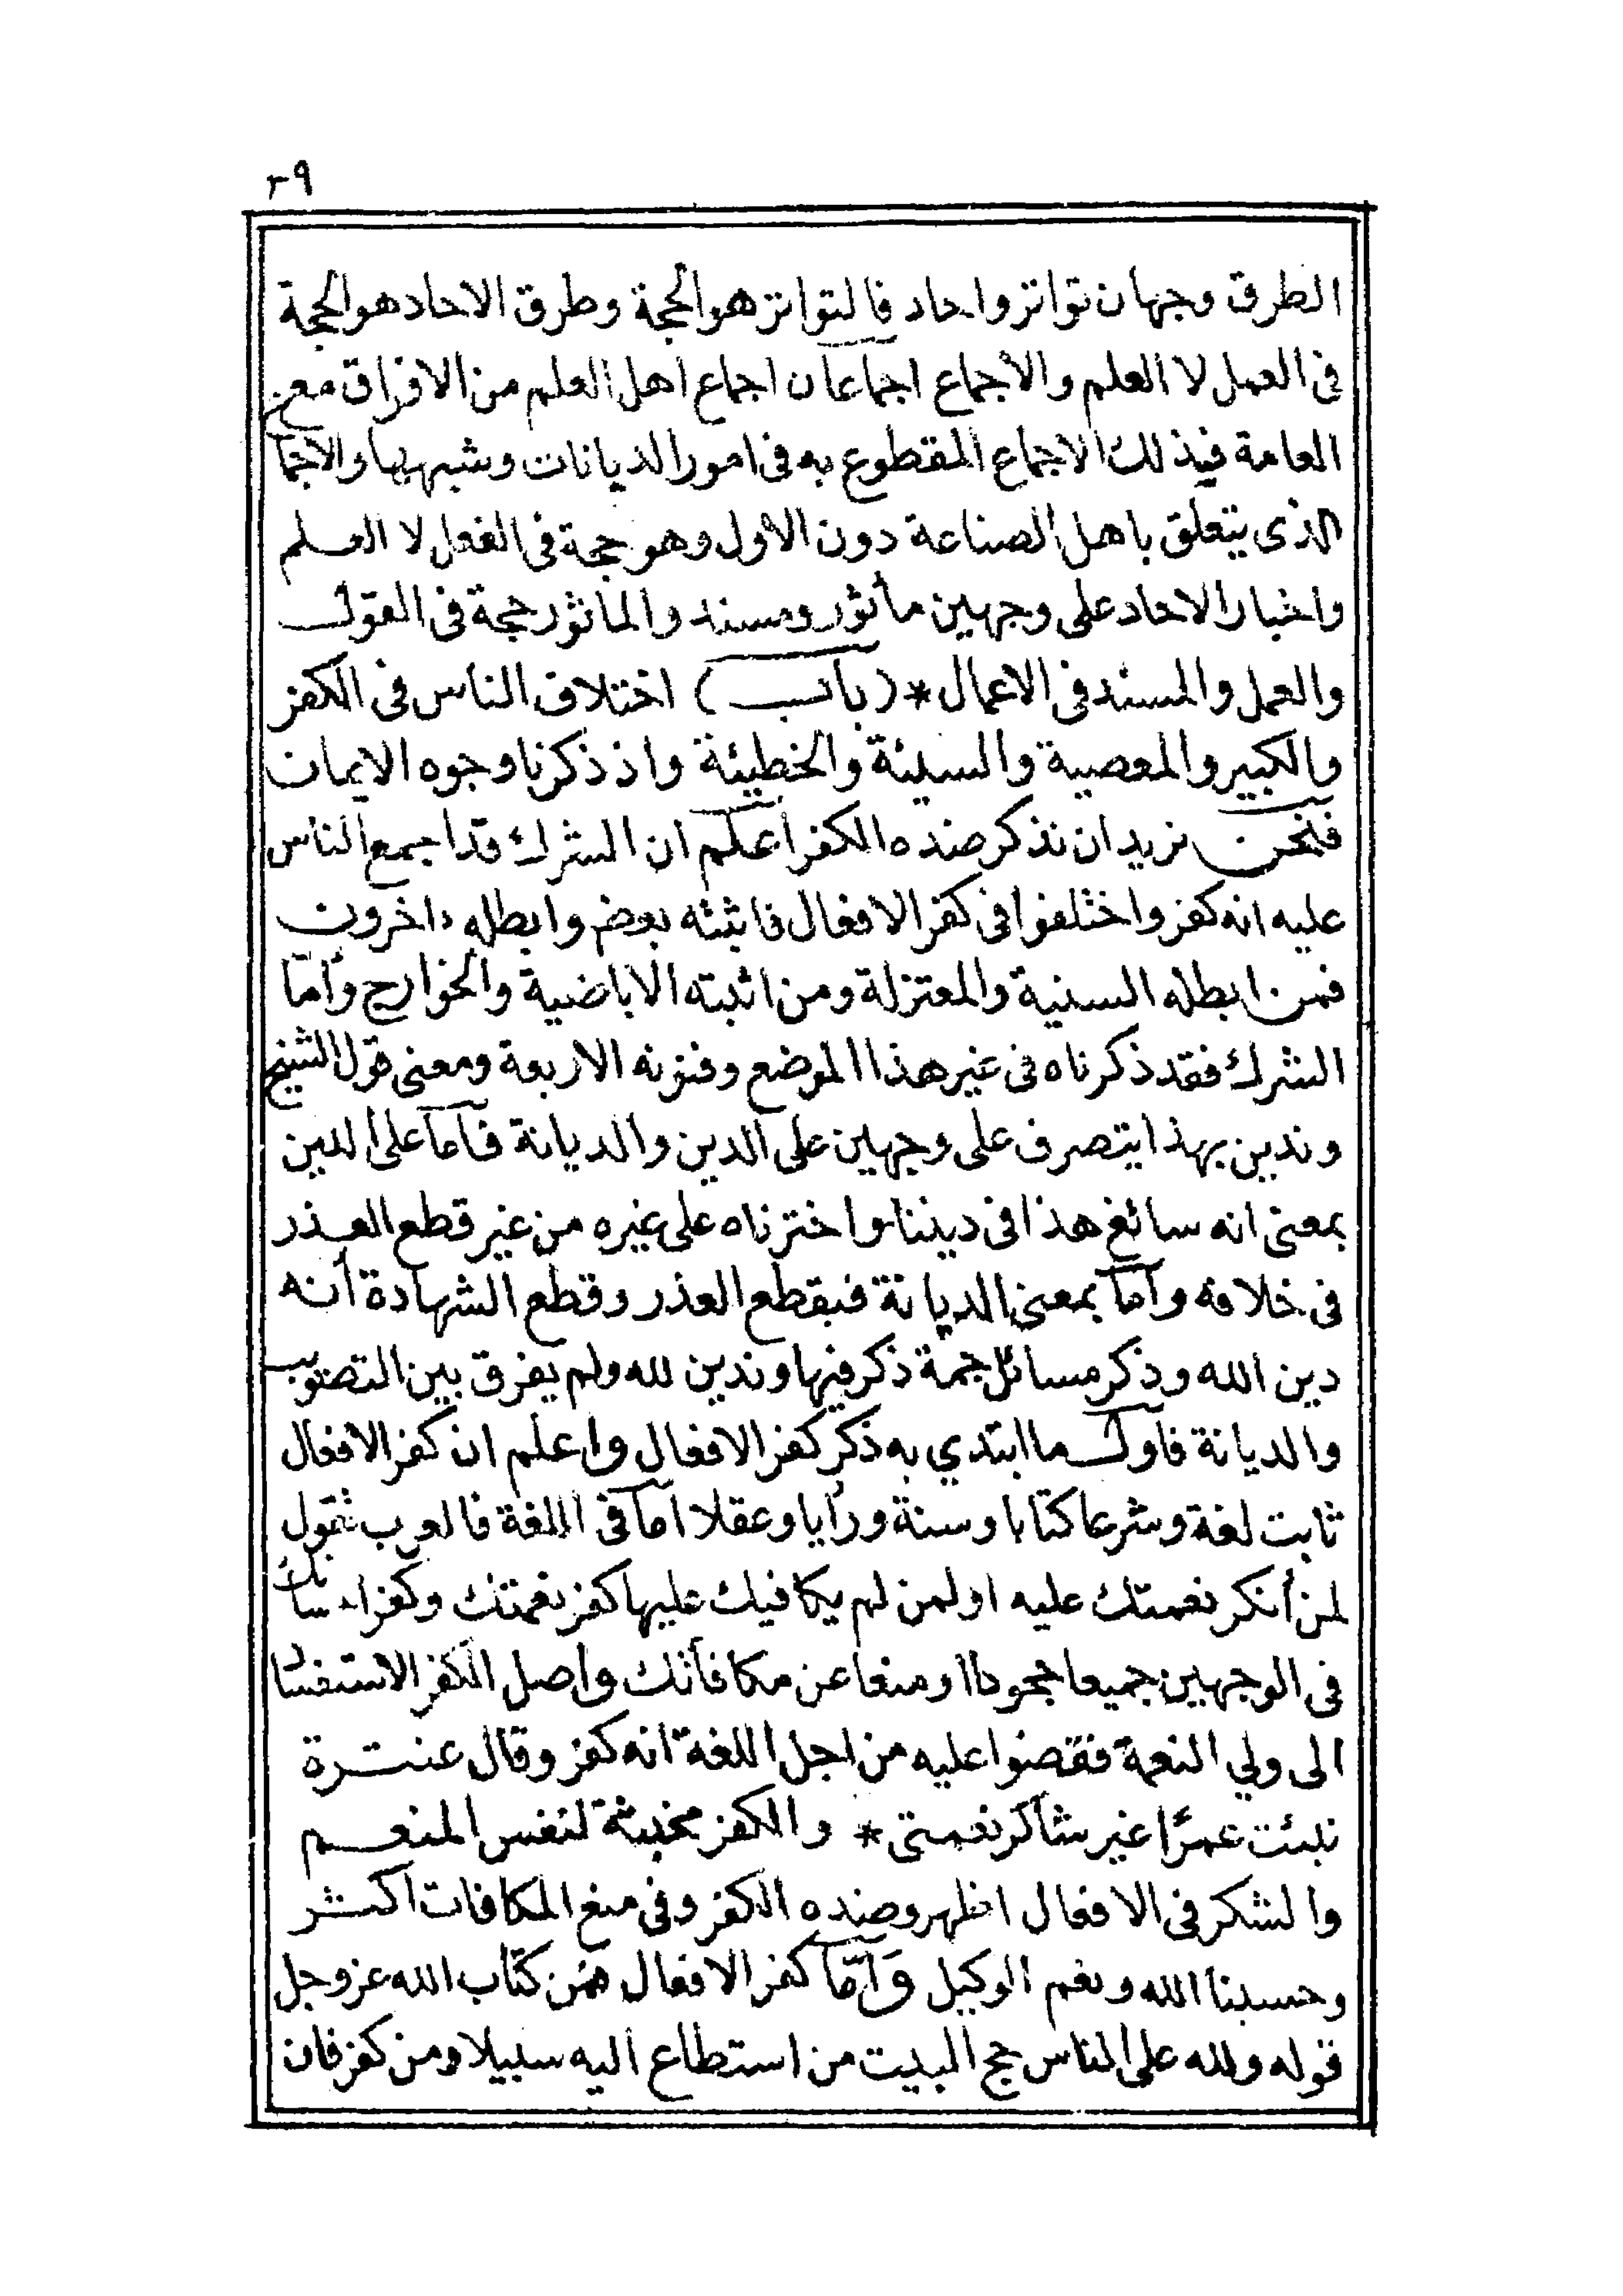 ٣٩
الطرق وجهان تواتر واحاد فالتواتر هو الحجة وطرق الاحاد هو الحجة
فى العمل لا العلم والأجماع اجماعان اجماع اهل العلم من الافراق مع
العامة فبذلك الاجماع المقطوع به فى امور الديانات وشبهها والاجما
الذى يتعلق باهل الصناعة دون الأول وهو حجة فى الفعل لا العلم
واخبار الاحاد على وجهين مأثور ومسند والماثور حجة فى القول
والعمل والمسند فى الاعمال * ( باب ) اختلاف الناس فى الكفر
والكبير والمعصية والسيئة والخطيئة واذ ذكرنا وجوه الايمان
فنحن نريد ان نذكر ضده الكفر أعلم ان الشرك قد اجمع الناس
عليه انه كفر واختلفوا فى كفر الافعال فاثبته بعض وابطله ءاخرون
فمن ابطله السنية والمعتزلة ومن اثبته الاباضية والخوارج وأمّا
الشرك فقد ذكرناه فى غير هذا الموضع وفنونه الاربعة ومعنى قول الشيخ
وندين بهذا يتصرف على وجهين على الدين والديانة فأما على الدين
بمعنى انه سائغ هذا فى ديننا واخترناه على غيره من غير قطع العذر
فى خلافه وأما بمعنى الديانة فبقطع العذر وقطع الشهادة أنه
دين الله وذكر مسائل جمة ذكر فيها وندين لله ولم يفرق بين التصويب
والديانة فأول ما ابتدي به ذكر كفر الافعال واعلم ان كفر الافعال
ثابت لغة وشرعا كتابا وسنة ورأيا وعقلا أما فى اللغة فالعرب تقول
لمن أنكر نعمتك عليه او لمن لم يكافيك عليها كفر نعمتك وكفر احسانك
فى الوجهين جميعا جحودا او منعا عن مكافأتك واصل الكفر الاستفساد
الى ولي النعمة فقضوا عليه من اجل اللغة انه كفر وقال عنترة
نبئت عمرًا غير شاكر نعمتى * والكفر مخبثة لنفس المنعم
والشكر فى الافعال اظهر وضده الكفر وفى منع المكافات اكثر
وحسبنا الله ونعم الوكيل وَأمّا كفر الافعال فمن كتاب الله عز وجل
قوله ولله على الناس حج البيت من استطاع اليه سبيلا ومن كفر فان